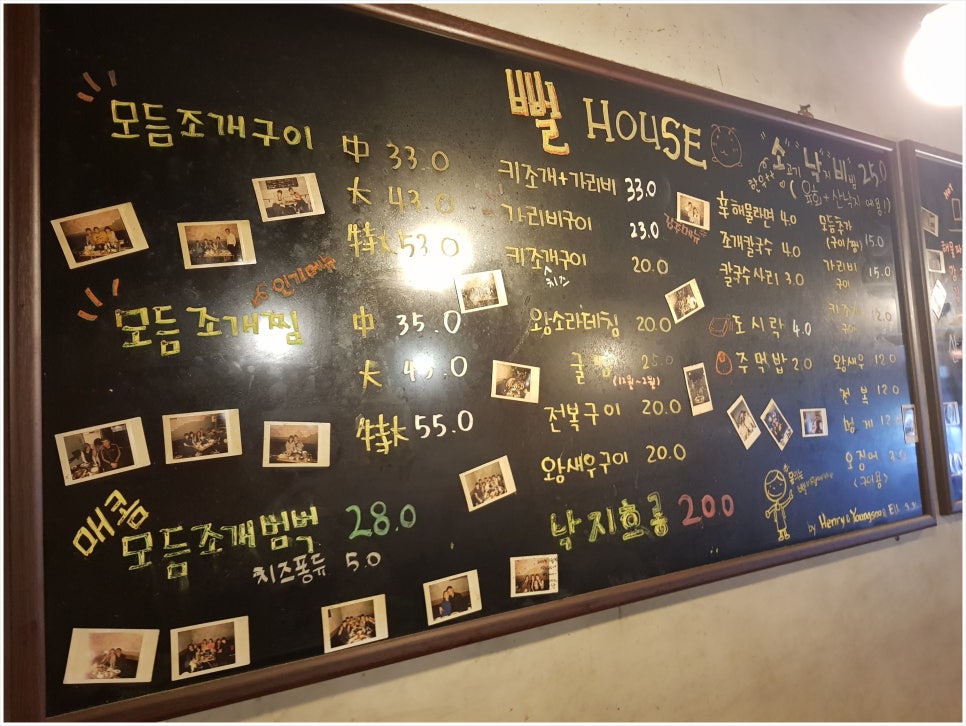 뻘 HOUSE
모듬조개구이
中 33.0
大 43.0
特大 53.0
인기메뉴
모듬조개찜
中 35.0
大 45.0
特大 55.0
매콤
모듬조개범벅 28.0
치즈퐁듀 5.0
키조개+가리비 33.0
가리비구이 23.0
키조개구이 20.0
치즈
왕소라데침 20.0
굴찜 25.0
(11월~2월)
전복구이 20.0
왕새우구이 20.0
낙지호롱 20.0
"소"고기"낙"지"비"빔 25.0
한우++
(육회+산낙지
강추메뉴
辛해물라면 4.0
조개칼국수 4.0
칼국수사리 3.0
도시락 4.0
주먹밥 2.0
모듬추가
(구이/찜) 15.0
가리비
구이 15.0
키조개
구이 12.0
왕새우 12.0
전복 12.0
멍게 12.0
오징어
<구이용>
by Henry & Youngsoo & Ell